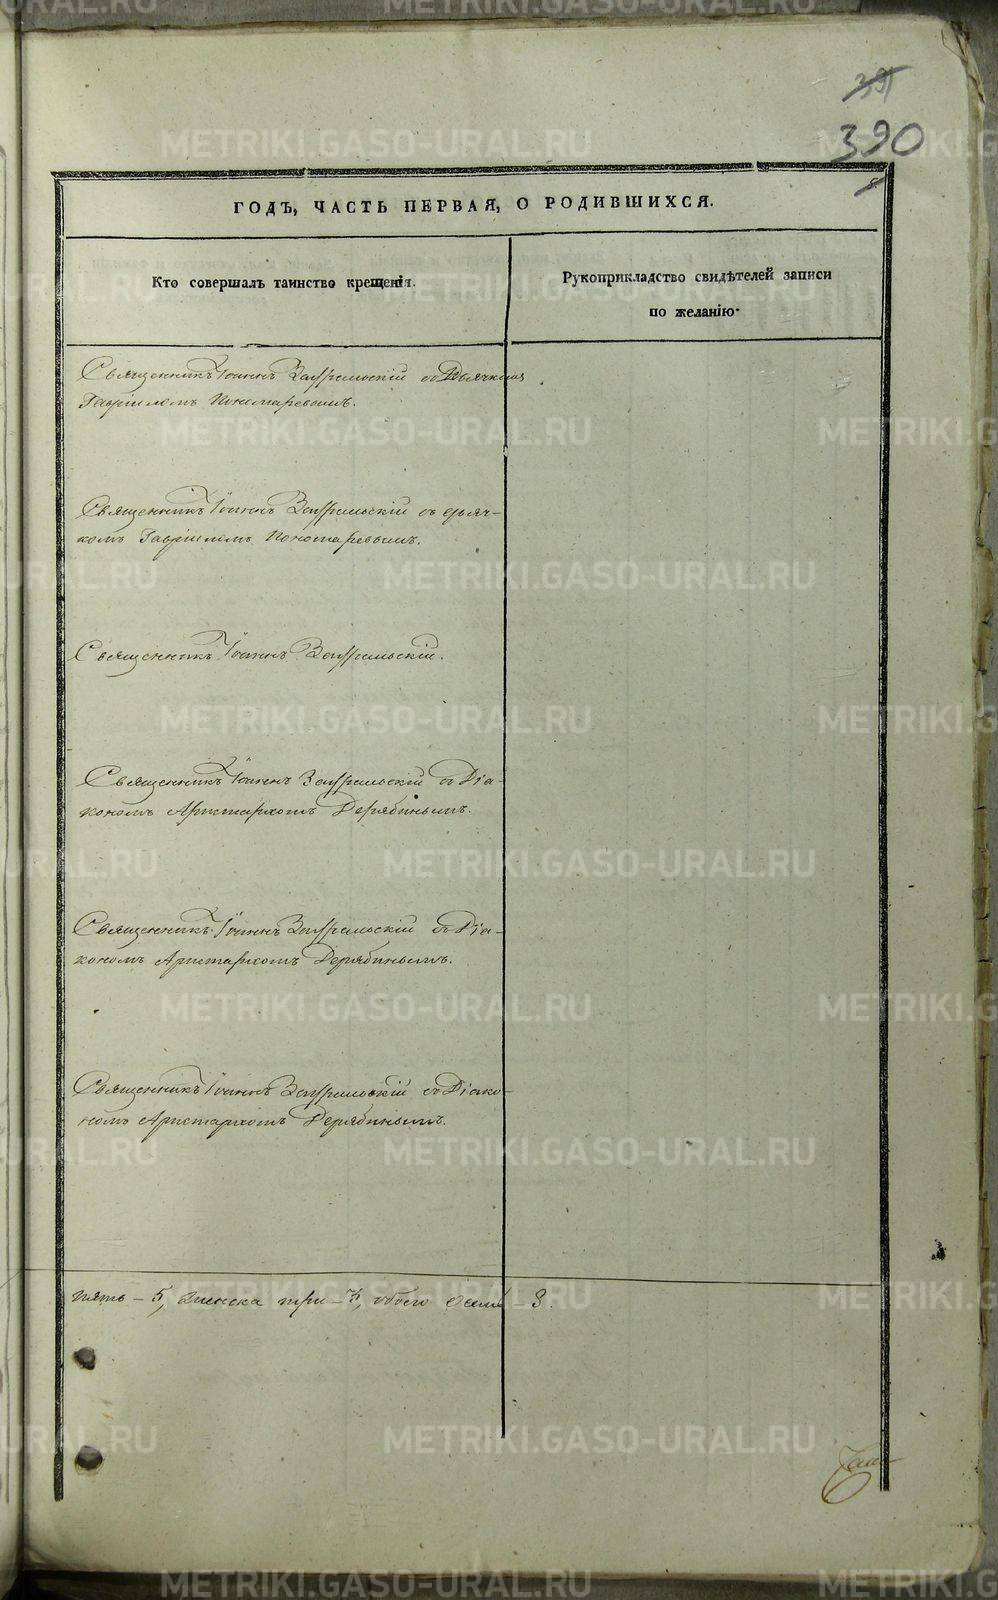 391
390
ГОДЪ, ЧАСТЬ ПЕРВАЯ, О РОДИВШИХСЯ.
Кто совершалъ таинство крещенія.
Рукоприкладство свидѣтелей записи
по желанію.
Священникъ Іоаннъ Зауральскій съ Дьячкомъ
Гавріиломъ Пономаревымъ.
Священникъ Іоаннъ Зауральскій съ дьяч-
комъ Гавріиломъ Пономаревымъ.
Священникъ Іоаннъ Зауральскій.
Священникъ Іоаннъ Зауральскій съ Діа-
кономъ Аристархомъ Дерябинымъ.
Священникъ Іоаннъ Зауральскій съ Діа-
кономъ Аристархомъ Дерябинымъ.
Священникъ Іоаннъ Зауральскій съ Діако-
номъ Аристархомъ Дерябинымъ.
пять – 5, женска три – 3, обоего осемь – 8.
METRIKI.GASO-URAL.RU